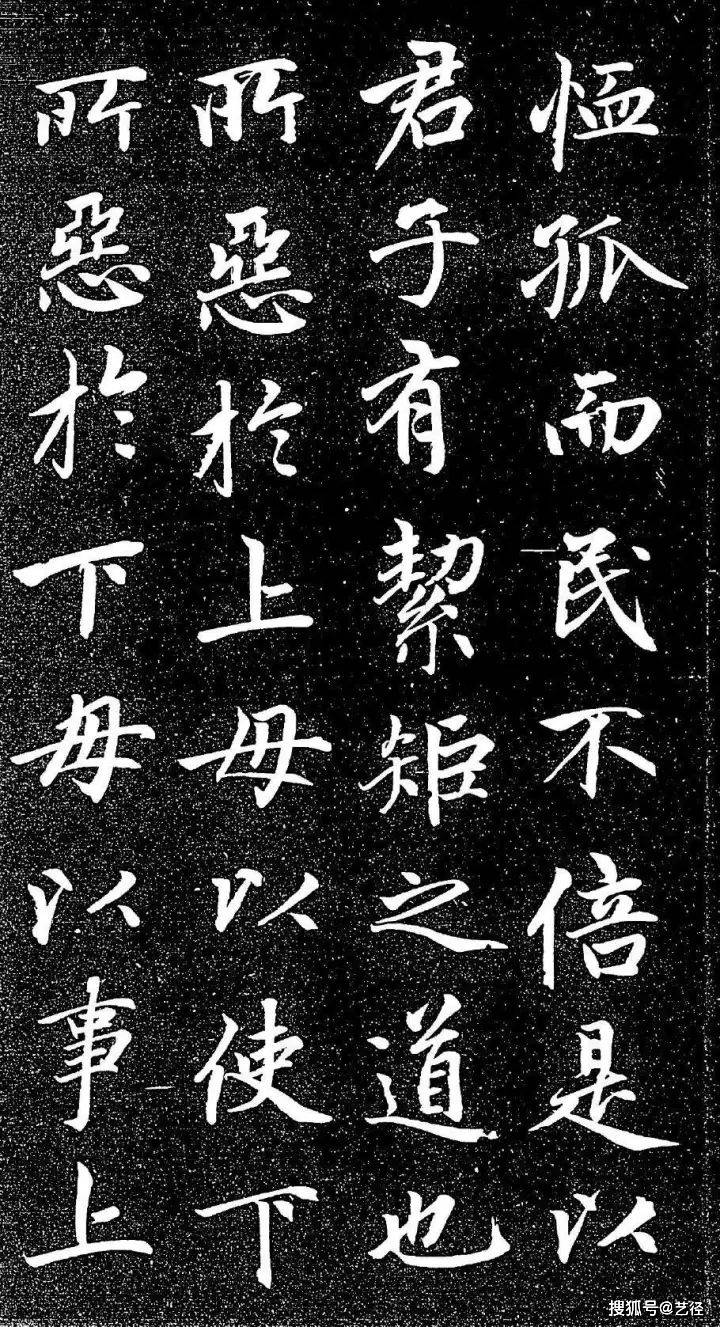 恤孤而民不倍是以
君子有絜矩之道也
所惡於上毋以使下
所惡於下毋以事上
搜狐号@艺径